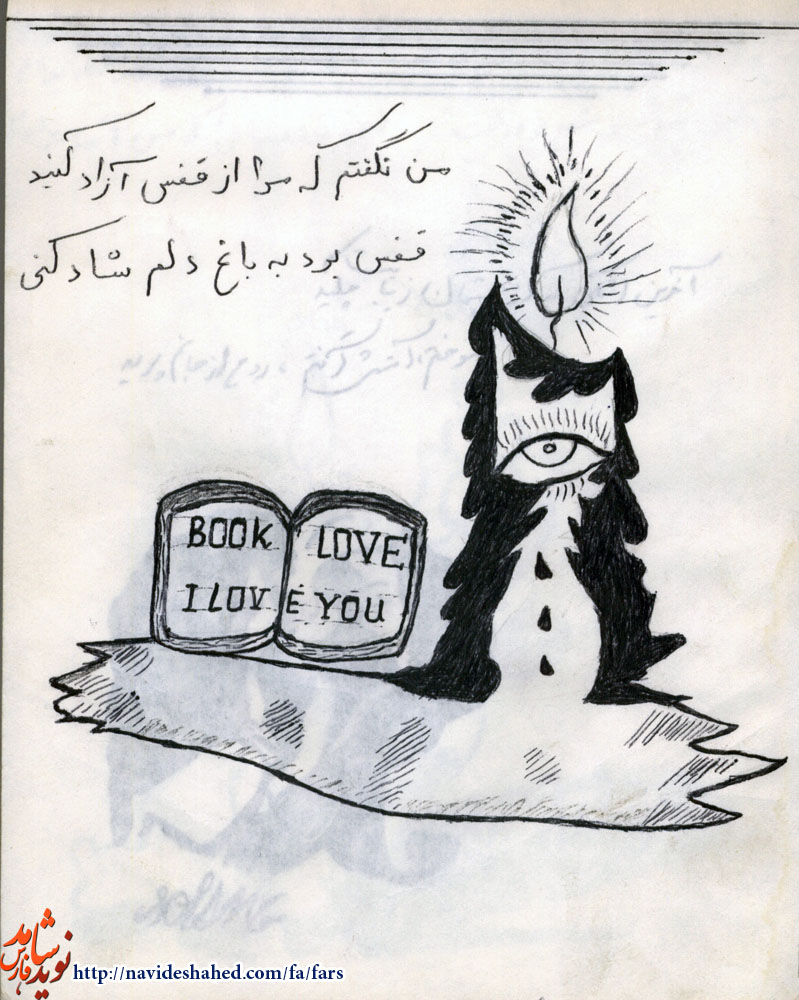 من نگفتم که مرا از قفس آزاد کنید
قفس بود به باغ دلم شاد کنی
BOOK LOVE
I LOVE YOU
نوید شاهد
فارس
http://navideshahed.com/fa/fars